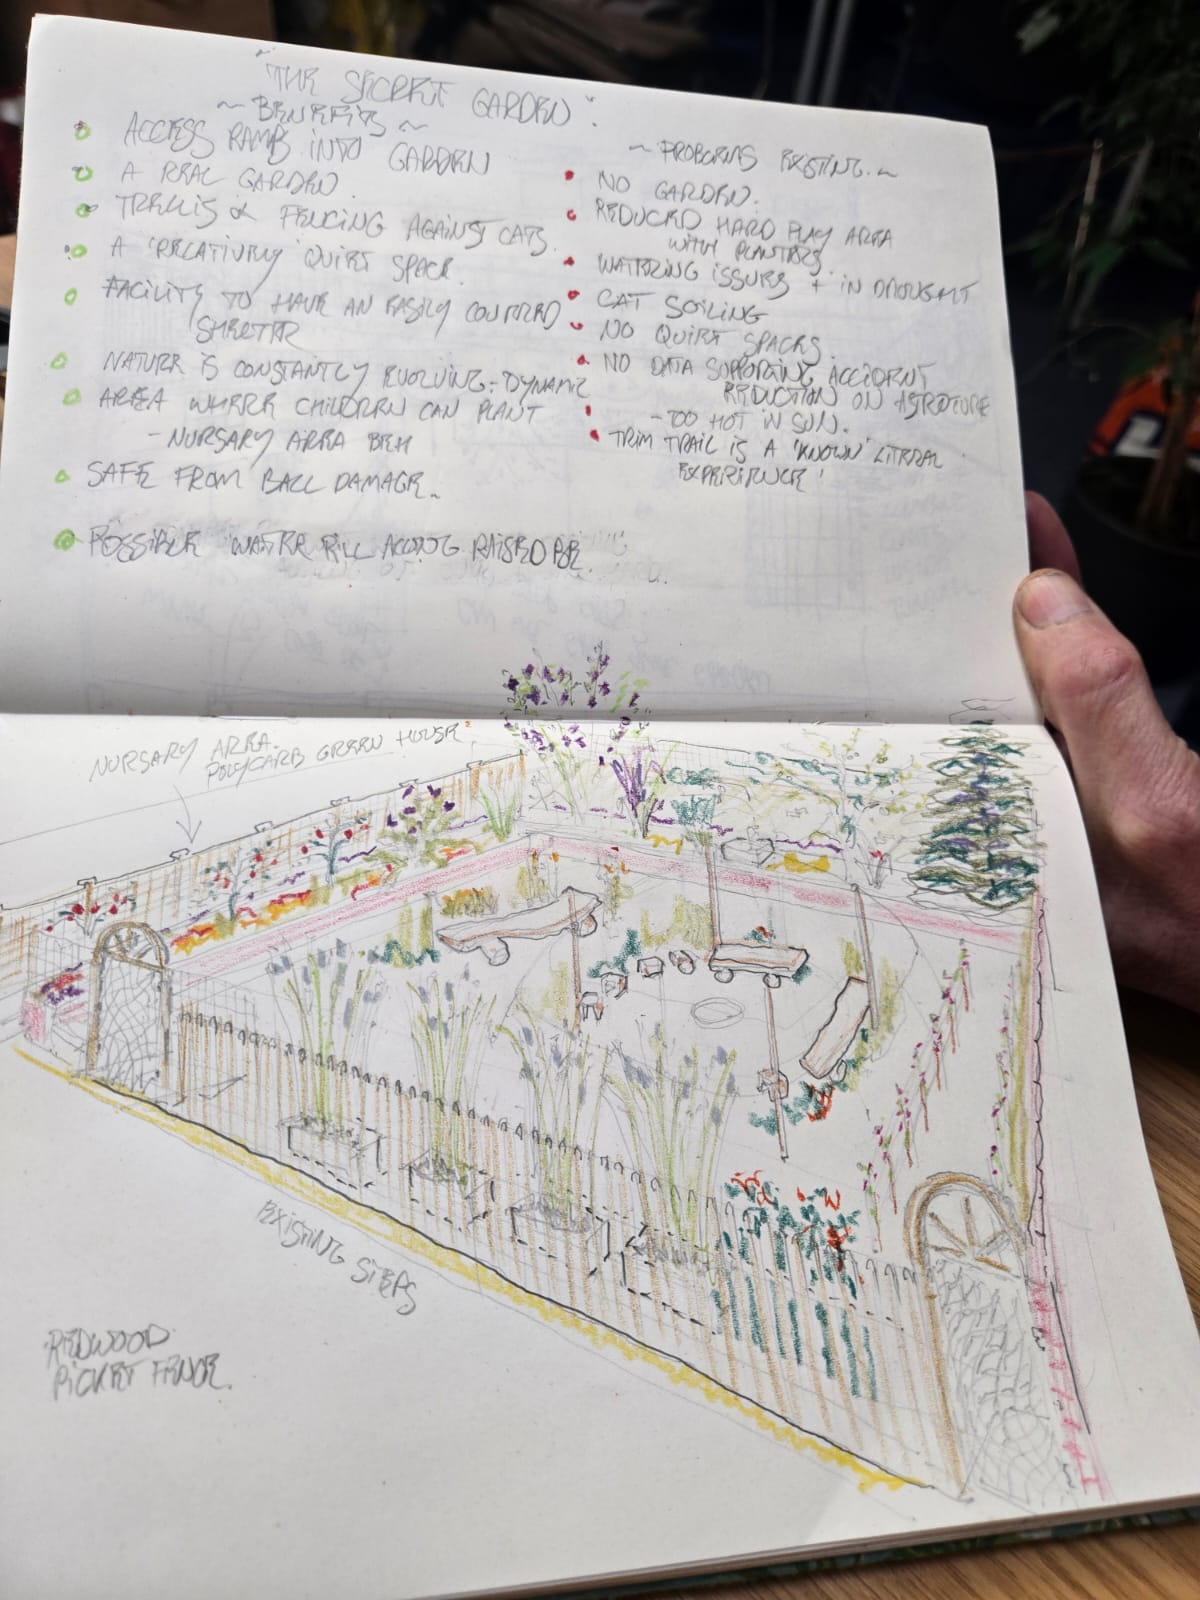 "THE SECRET GARDEN".
~ BENEFITS ~
ACCESS RAMP INTO GARDEN
A REAL GARDEN.
TRELLIS & FENCING AGAINST CATS.
A 'RELATIVELY' QUIET SPACE.
FACILITY TO HAVE AN EASILY COVERED
SHELTER
NATURE IS CONSTANTLY EVOLVING - DYNAMIC
AREA WHERE CHILDREN CAN PLANT
- NURSARY AREA
SAFE FROM BALL DAMAGE.
POSSIBLE WATER RILL ALONG RAISED
~ PROBLEMS EXISTING. ~
NO GARDEN.
REDUCED HARD PLAY AREA
WITH PLANTERS.
WATERING ISSUES + IN DROUGHT
CAT SOILING
NO QUIET SPACES.
NO DATA SUPPORTING ACCIDENT
REDUCTION ON ASTROTURF
- TOO HOT IN SUN.
TRIM TRAIL IS A 'KNOWN' LITERAL
EXPERIENCE'
NURSARY AREA.
POLYCARB GREEN HOUSE
EXISTING STEPS
REDWOOD
PICKET FENCE.